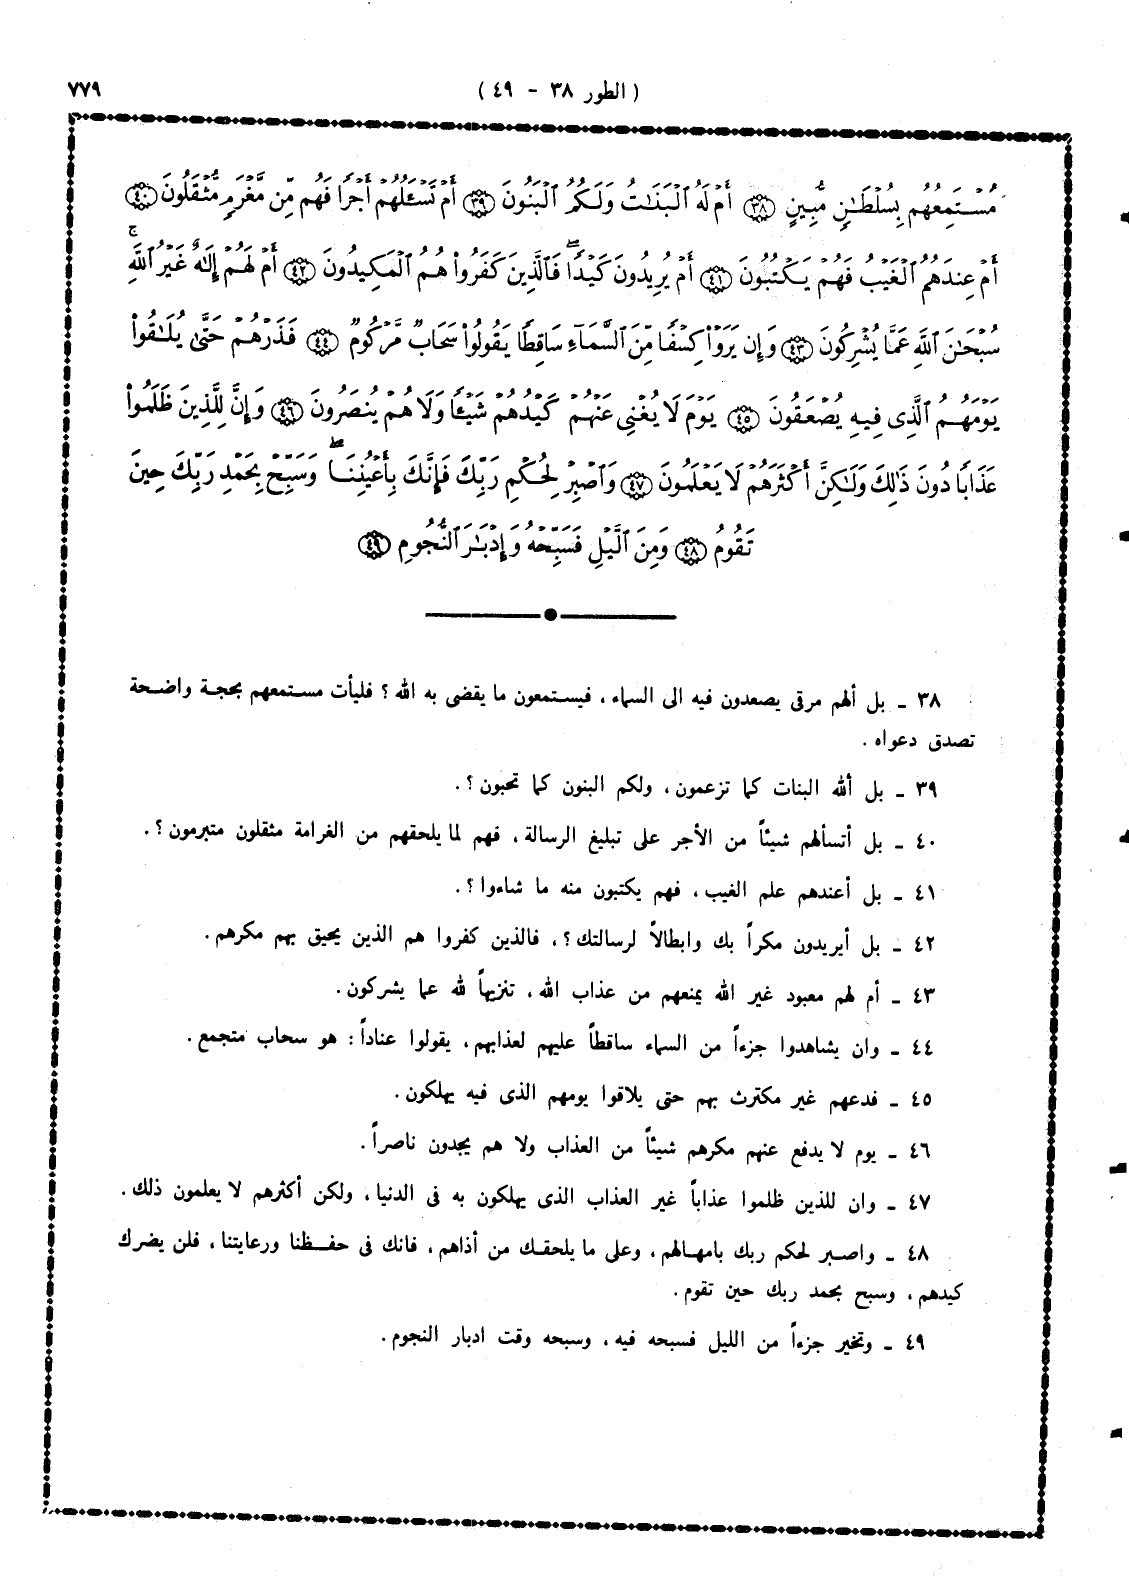 ٧٧٩
( الطور ٣٨ - ٤٩ )
مُسْتَمِعُهُم بِسُلْطَـٰنٍ مُّبِينٍ ٣٨ أَمْ لَهُ ٱلْبَنَـٰتُ وَلَكُمُ ٱلْبَنُونَ ٣٩ أَمْ تَسْـَٔلُهُمْ أَجْرًا فَهُم مِّن مَّغْرَمٍ مُّثْقَلُونَ ٤٠
أَمْ عِندَهُمُ ٱلْغَيْبُ فَهُمْ يَكْتُبُونَ ٤١ أَمْ يُرِيدُونَ كَيْدًاۖ فَٱلَّذِينَ كَفَرُوا۟ هُمُ ٱلْمَكِيدُونَ ٤٢ أَمْ لَهُمْ إِلَـٰهٌ غَيْرُ ٱللَّهِۚ
سُبْحَـٰنَ ٱللَّهِ عَمَّا يُشْرِكُونَ ٤٣ وَإِن يَرَوْا۟ كِسْفًا مِّنَ ٱلسَّمَآءِ سَاقِطًا يَقُولُوا۟ سَحَابٌ مَّرْكُومٌ ٤٤ فَذَرْهُمْ حَتَّىٰ يُلَـٰقُوا۟
يَوْمَهُمُ ٱلَّذِى فِيهِ يُصْعَقُونَ ٤٥ يَوْمَ لَا يُغْنِى عَنْهُمْ كَيْدُهُمْ شَيْـًٔا وَلَا هُمْ يُنصَرُونَ ٤٦ وَإِنَّ لِلَّذِينَ ظَلَمُوا۟
عَذَابًا دُونَ ذَٰلِكَ وَلَـٰكِنَّ أَكْثَرَهُمْ لَا يَعْلَمُونَ ٤٧ وَٱصْبِرْ لِحُكْمِ رَبِّكَ فَإِنَّكَ بِأَعْيُنِنَاۖ وَسَبِّحْ بِحَمْدِ رَبِّكَ حِينَ
تَقُومُ ٤٨ وَمِنَ ٱلَّيْلِ فَسَبِّحْهُ وَإِدْبَـٰرَ ٱلنُّجُومِ ٤٩
٣٨ ـ بل ألهم مرقى يصعدون فيه الى السماء ، فيستمعون ما يقضى به الله ؟ فليأت مستمعهم بحجة واضحة
تصدق دعواه .
٣٩ ـ بل ألله البنات كما تزعمون ، ولكم البنون كما تحبون ؟ .
٤٠ ـ بل أتسألهم شيئاً من الأجر على تبليغ الرسالة ، فهم لما يلحقهم من الغرامة مثقلون متبرمون ؟ .
٤١ ـ بل أعندهم علم الغيب ، فهم يكتبون منه ما شاءوا ؟ .
٤٢ ـ بل أيريدون مكراً بك وابطالاً لرسالتك ؟ ، فالذين كفروا هم الذين يحيق بهم مكرهم .
٤٣ ـ أم لهم معبود غير الله يمنعهم من عذاب الله ، تنزيهاً لله عما يشركون .
٤٤ ـ وان يشاهدوا جزءاً من السماء ساقطاً عليهم لعذابهم ، يقولوا عناداً : هو سحاب متجمع .
٤٥ ـ فدعهم غير مكترث بهم حتى يلاقوا يومهم الذى فيه يهلكون .
٤٦ ـ يوم لا يدفع عنهم مكرهم شيئاً من العذاب ولا هم يجدون ناصراً .
٤٧ ـ وان للذين ظلموا عذاباً غير العذاب الذى يهلكون به فى الدنيا ، ولكن أكثرهم لا يعلمون ذلك .
٤٨ ـ واصبر لحكم ربك بامهالهم ، وعلى ما يلحقك من أذاهم ، فانك فى حفظنا ورعايتنا ، فلن يضرك
كيدهم ، وسبح بحمد ربك حين تقوم .
٤٩ ـ وتخير جزءاً من الليل فسبحه فيه ، وسبحه وقت ادبار النجوم .